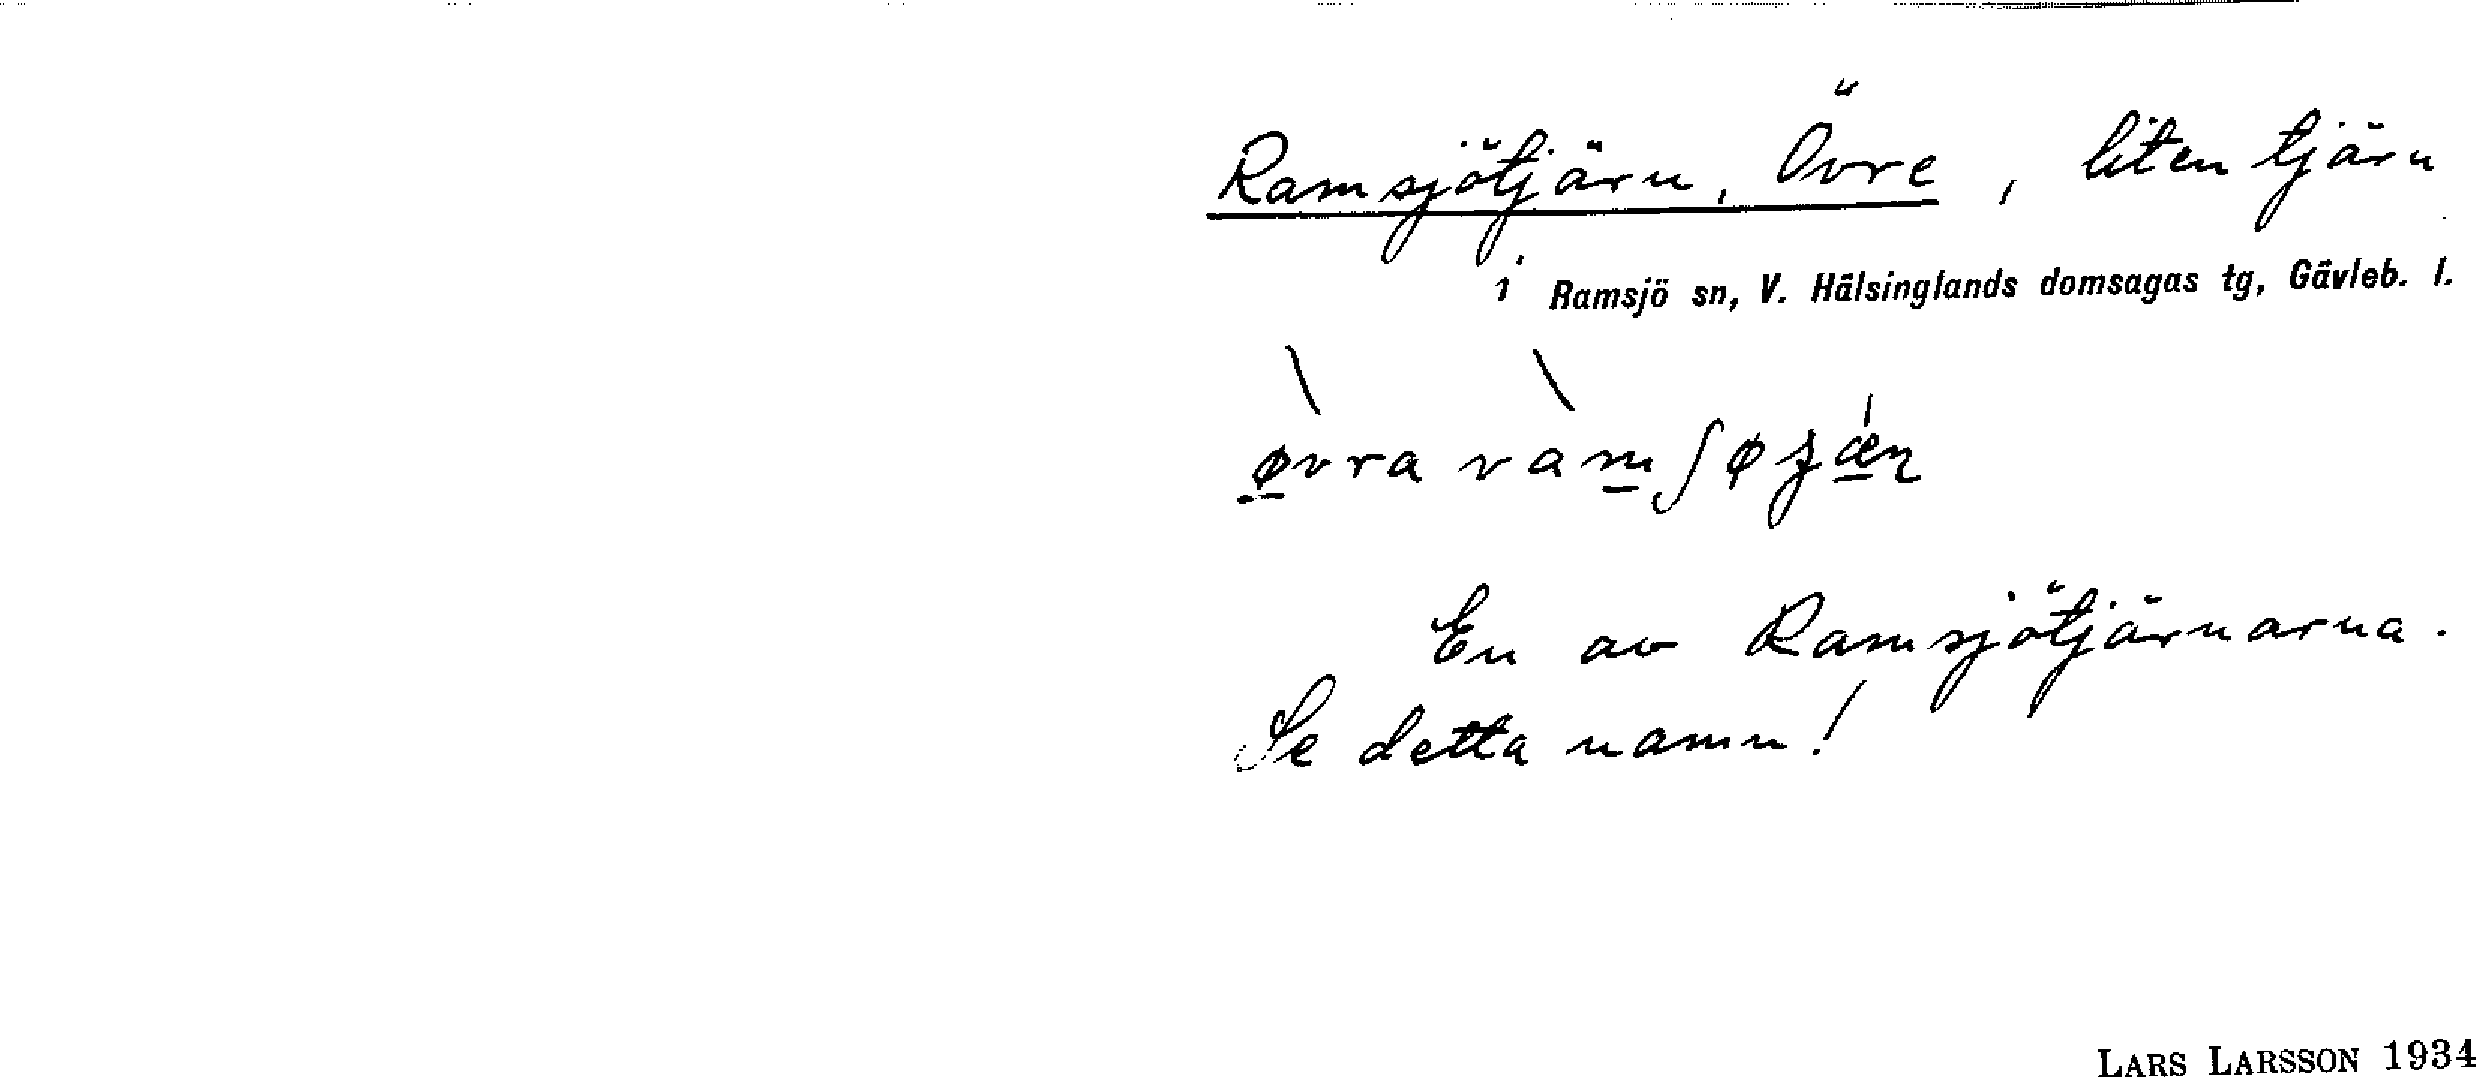 Ramsjötjärn, Övre, liten tjärn
i Ramsjö sn, V. Hälsinglands domsagas tg, Gävleb. l.
En av Ramsjötjärnarna.
Se detta namn!
LARS LARSSON 1934